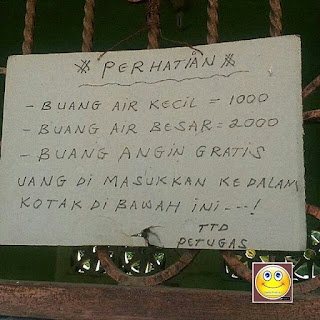 ※ PERHATIAN ※
- BUANG AIR KECIL = 1000
- BUANG AIR BESAR = 2000
- BUANG ANGIN GRATIS
UANG DI MASUKKAN KEDALAM
KOTAK DI BAWAH INI ---!
TTD
PETUGAS